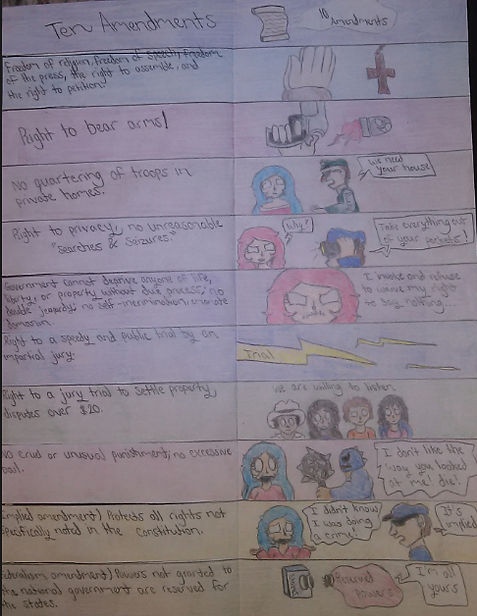 Ten Amendments
10 Amendments
Freedom of religion, freedom of speech, freedom
of the press, the right to assemble, and
the right to petition.
Right to bear arms!
No quartering of troops in
private homes.
We need
your house
Right to privacy, no unreasonable
"searches & seizures"
Why?
Take everything out
of your pockets!
Government cannot deprive anyone of life,
liberty, or property without due process; no
double jeopardy; no self-
domain.
I invoke and refuse
to waive my right
to say nothing.
Right to a speedy and public trial by an
impartial jury.
Trial
Right to a jury trial to settle property
disputes over $20.
We are willing to listen.
No crual or unusual punishment; no excessive
bail.
I don't like the
way you looked
at me! die!
implied amendment) Protects all rights not
specifically noted in the Constitution.
I didn't know
I was doing
a crime!
It's
implied
Federalism amendment) Powers not granted to
the national government are reserved for
the states.
Reserved
Powers
I'm all
yours